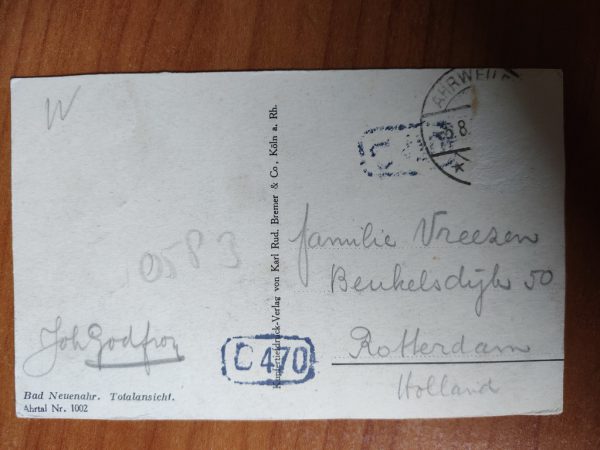 W
0583
Joh Godfroy
Bad Neuenahr. Totalansicht.
Ahrtal Nr. 1002
Kupfertiefdruck-Verlag von Karl Rud. Bremer & Co., Köln a. Rh.
C 470
AHRWEILE
8.
familie Vreesen
Beukelsdijk 50
Rotterdam
Holland